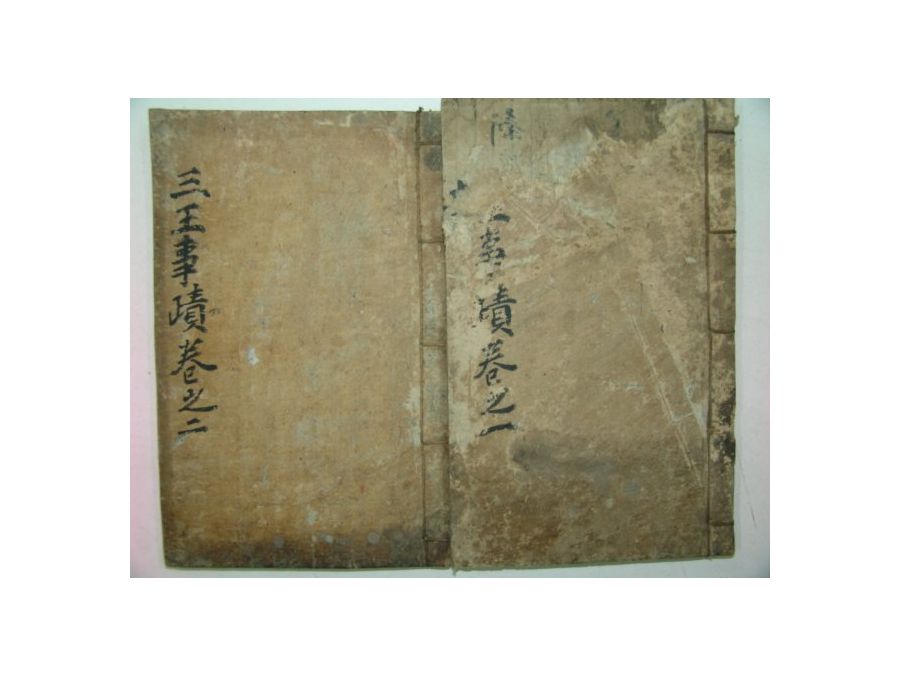 事蹟卷之一
三王事蹟卷之二